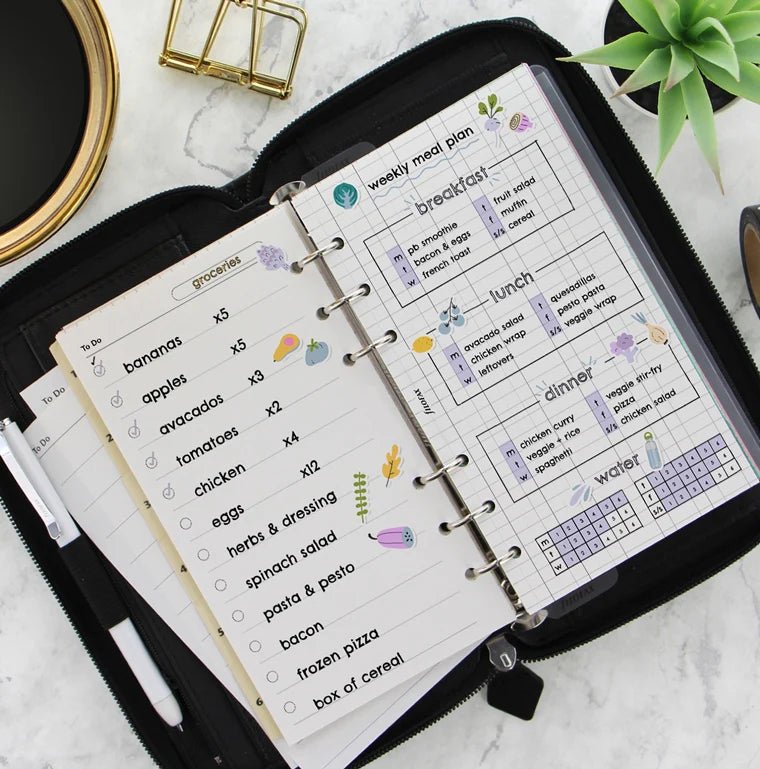 groceries
To Do
bananas x5
apples x5
avacados x3
tomatoes x2
chicken x4
eggs x12
herbs & dressing
spinach salad
pasta & pesto
bacon
frozen pizza
box of cereal
To Do
To Do
4
5
6
weekly meal plan
breakfast
m pb smoothie
t bacon & eggs
w french toast
t fruit salad
f muffin
s/s cereal
lunch
m avocado salad
t chicken wrap
w leftovers
t quesadillas
f pesto pasta
s/s veggie wrap
dinner
m chicken curry
t veggie + rice
w spaghetti
t veggie stir-fry
f pizza
s/s chicken salad
water
m 1 2 3 4 5
t 1 2 3 4 5
w 1 2 3 4 5
t 1 2 3 4 5
f 1 2 3 4 5
s/s 1 2 3 4 5